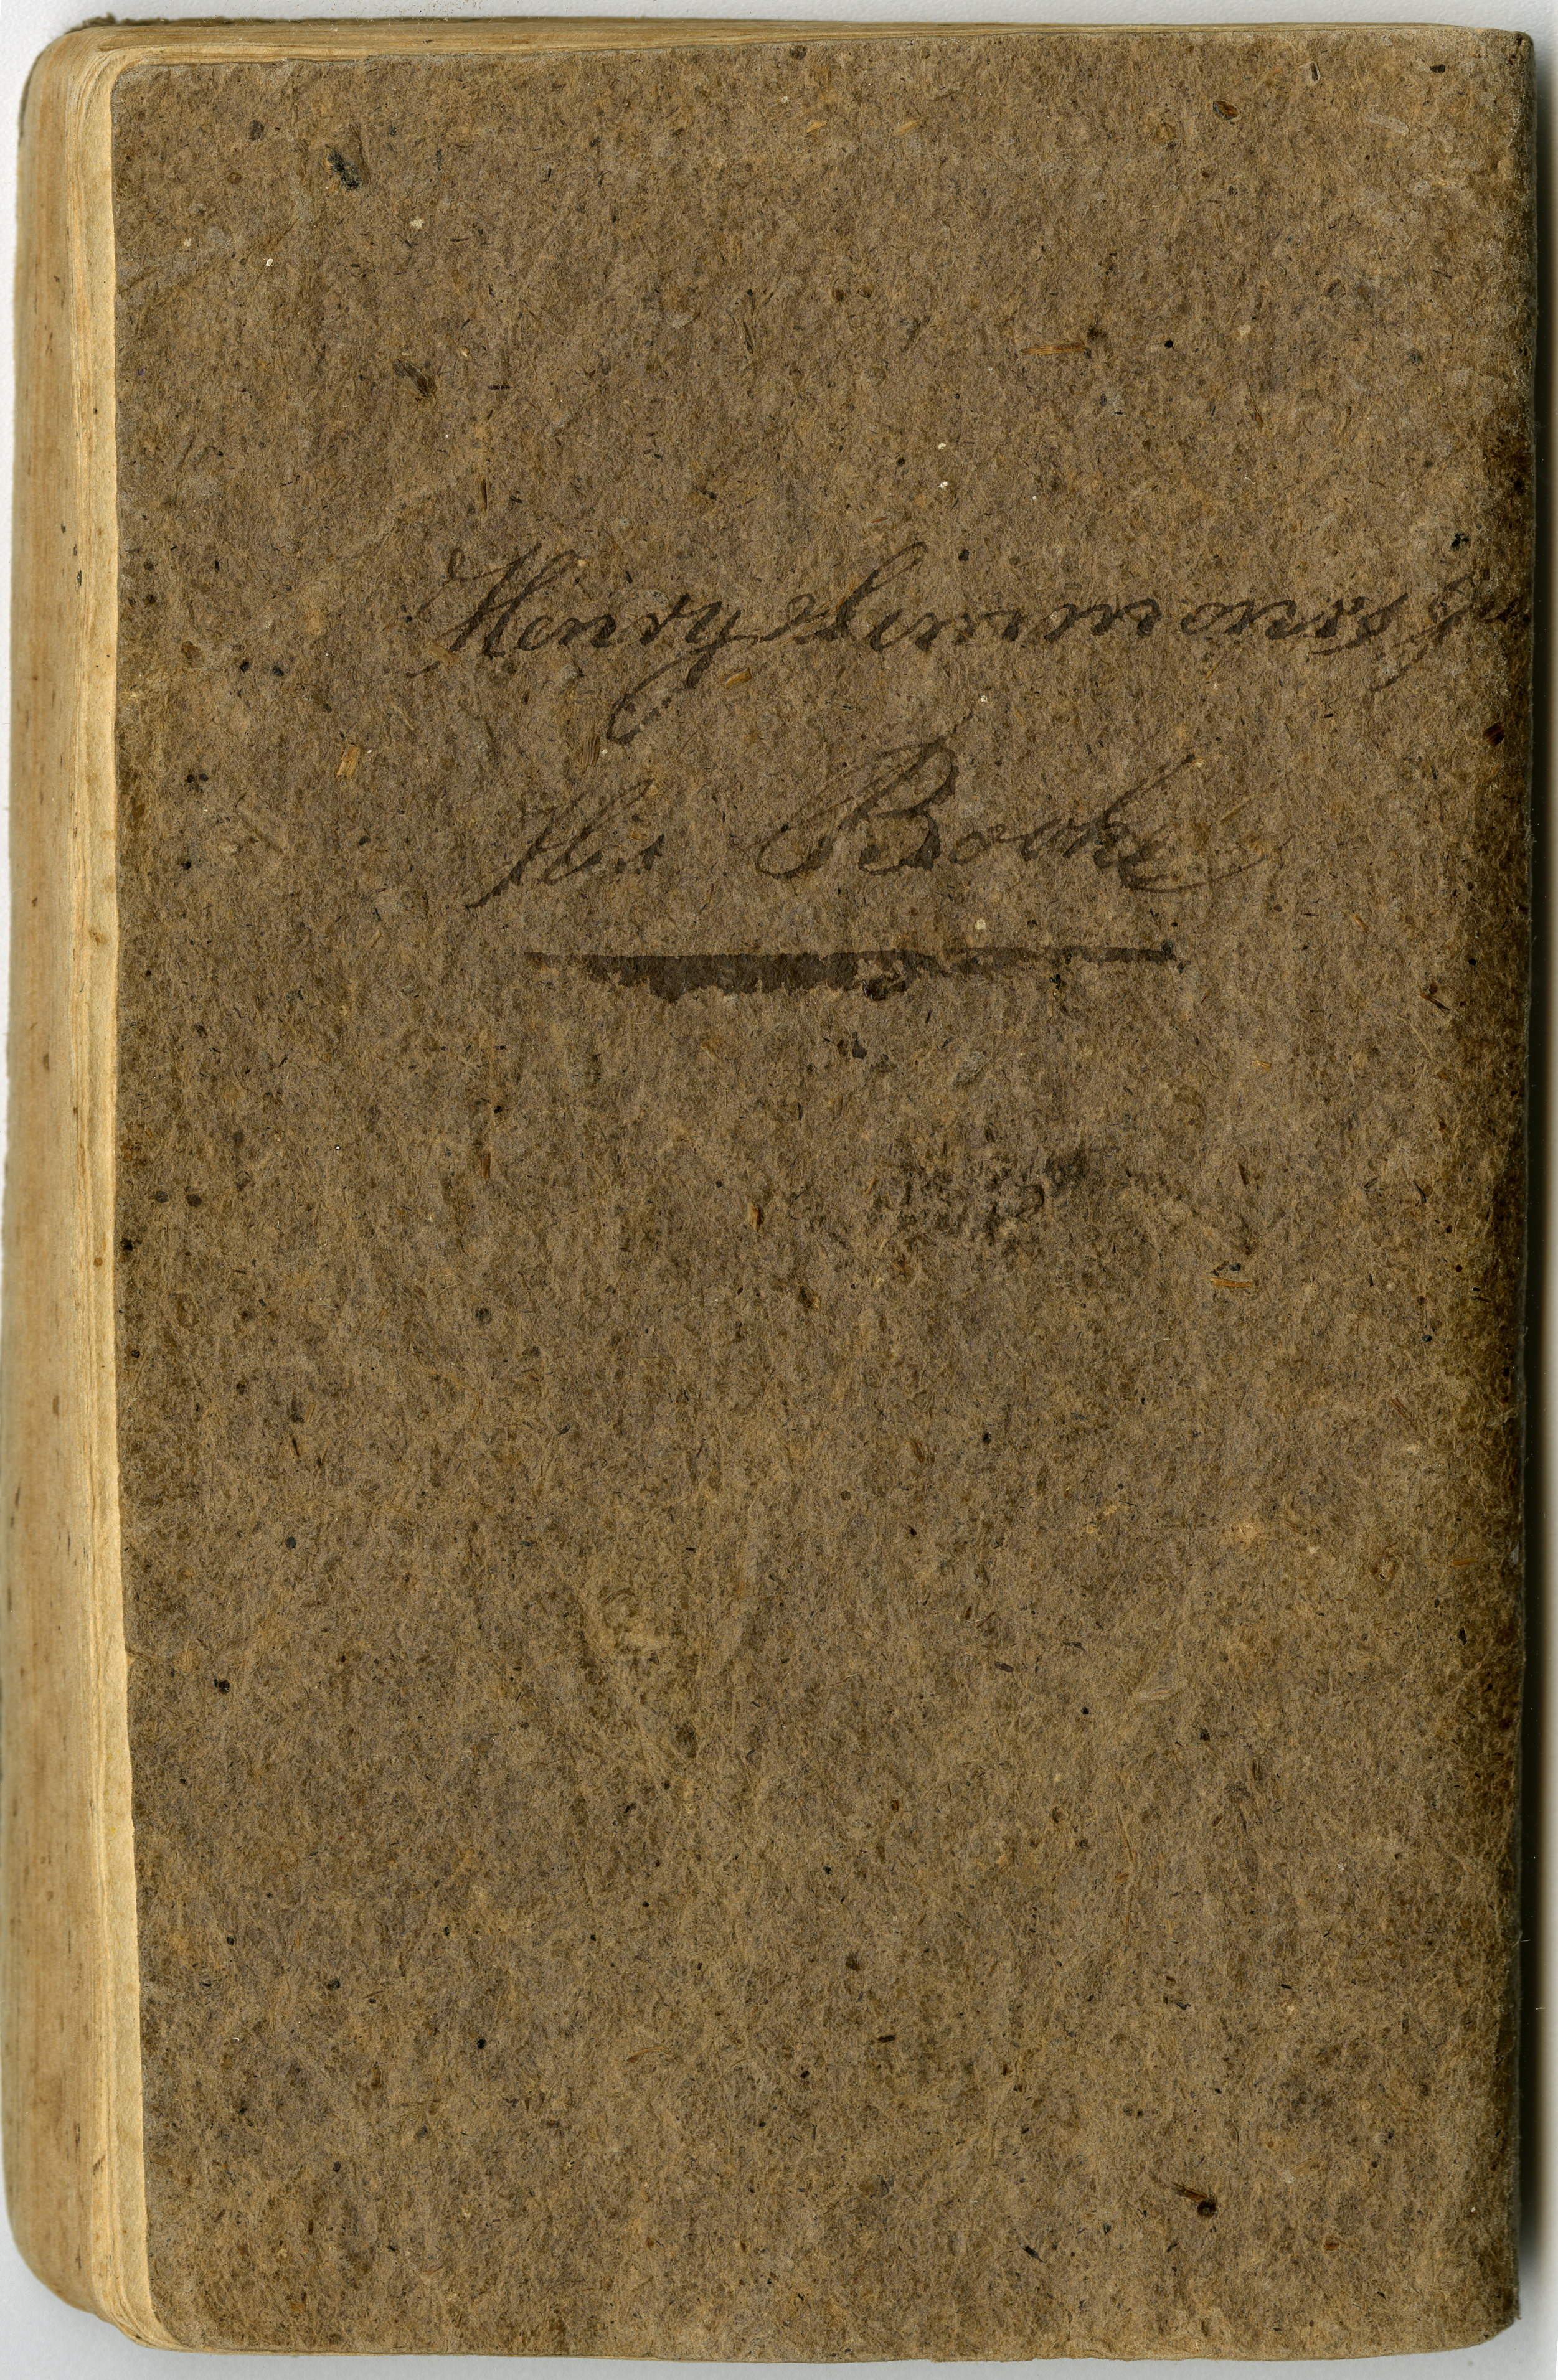 Henry Simmons Jun
His Booke